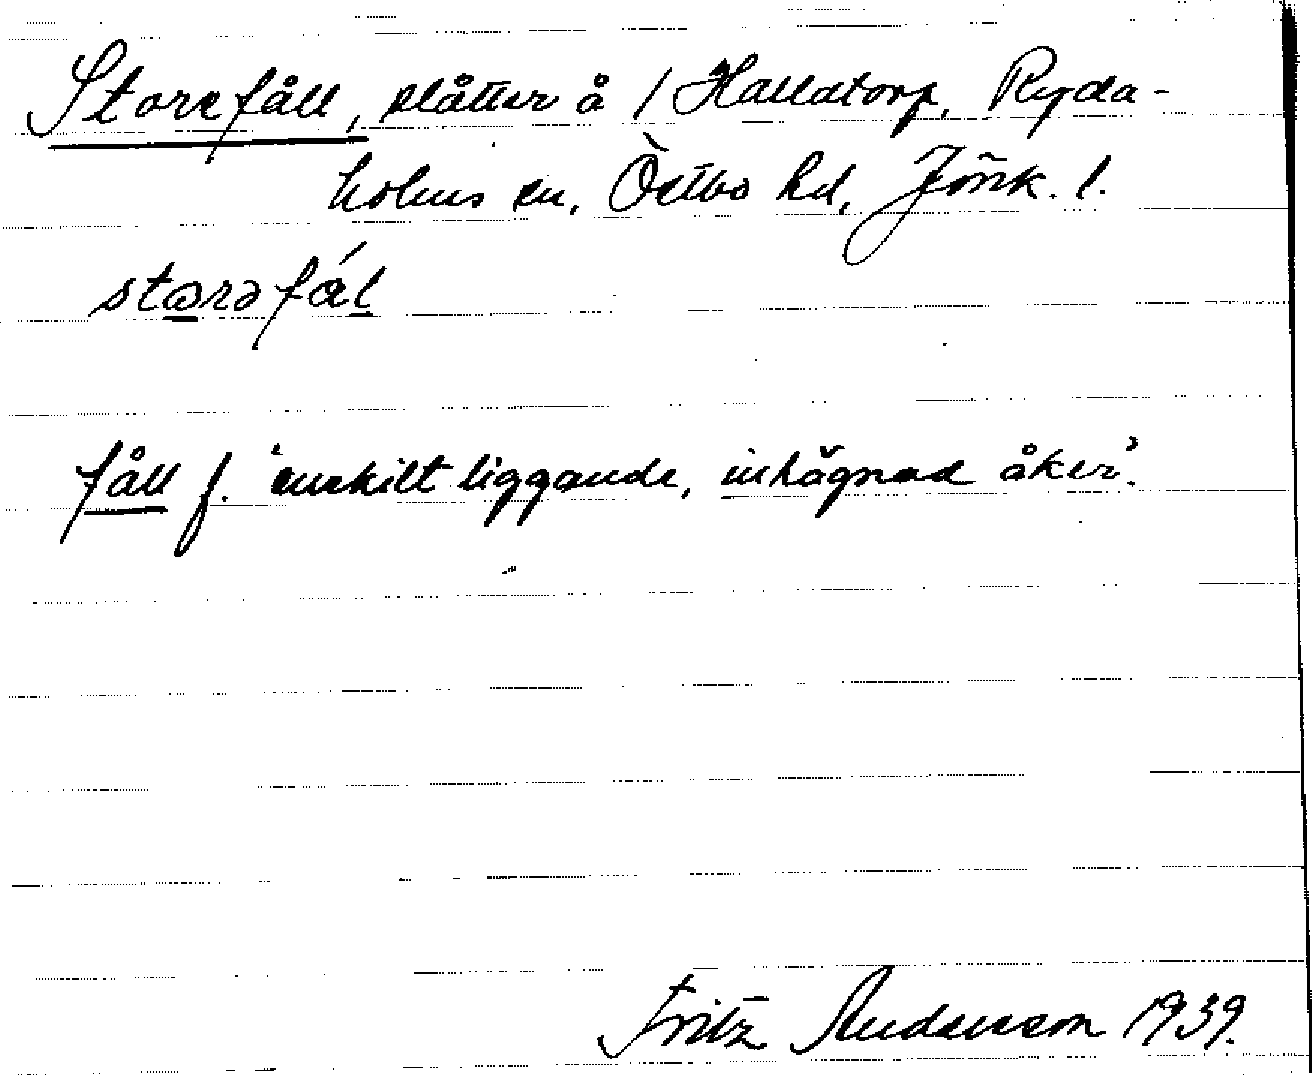 Storefåll, slåtter å / Hallatorp, Ryda-
holms sn, Östbo hd, Jönk. l.
storəfål
fåll f. 'enskilt liggande, inhägnad åker'.
Fritz Andersson 1939.